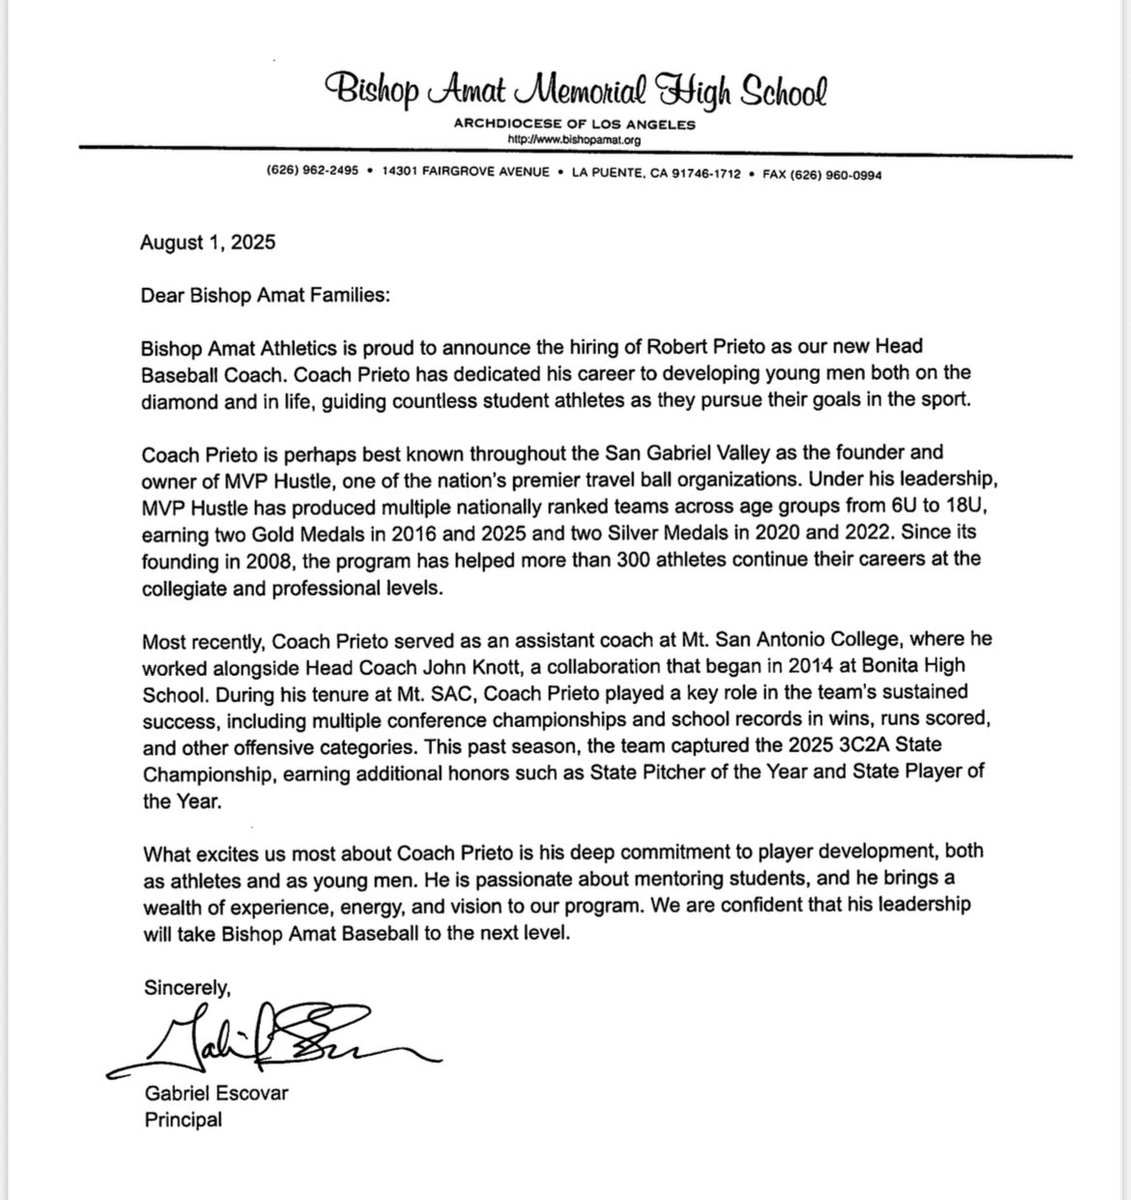 Bishop Amat Memorial High School
ARCHDIOCESE OF LOS ANGELES
http://www.bishopamat.org
(626) 962-2495 • 14301 FAIRGROVE AVENUE • LA PUENTE, CA 91746-1712 • FAX (626) 960-0994
August 1, 2025
Dear Bishop Amat Families:
Bishop Amat Athletics is proud to announce the hiring of Robert Prieto as our new Head
Baseball Coach. Coach Prieto has dedicated his career to developing young men both on the
diamond and in life, guiding countless student athletes as they pursue their goals in the sport.
Coach Prieto is perhaps best known throughout the San Gabriel Valley as the founder and
owner of MVP Hustle, one of the nation's premier travel ball organizations. Under his leadership,
MVP Hustle has produced multiple nationally ranked teams across age groups from 6U to 18U,
earning two Gold Medals in 2016 and 2025 and two Silver Medals in 2020 and 2022. Since its
founding in 2008, the program has helped more than 300 athletes continue their careers at the
collegiate and professional levels.
Most recently, Coach Prieto served as an assistant coach at Mt. San Antonio College, where he
worked alongside Head Coach John Knott, a collaboration that began in 2014 at Bonita High
School. During his tenure at Mt. SAC, Coach Prieto played a key role in the team's sustained
success, including multiple conference championships and school records in wins, runs scored,
and other offensive categories. This past season, the team captured the 2025 3C2A State
Championship, earning additional honors such as State Pitcher of the Year and State Player of
the Year.
What excites us most about Coach Prieto is his deep commitment to player development, both
as athletes and as young men. He is passionate about mentoring students, and he brings a
wealth of experience, energy, and vision to our program. We are confident that his leadership
will take Bishop Amat Baseball to the next level.
Sincerely,
Gabriel Escovar
Principal